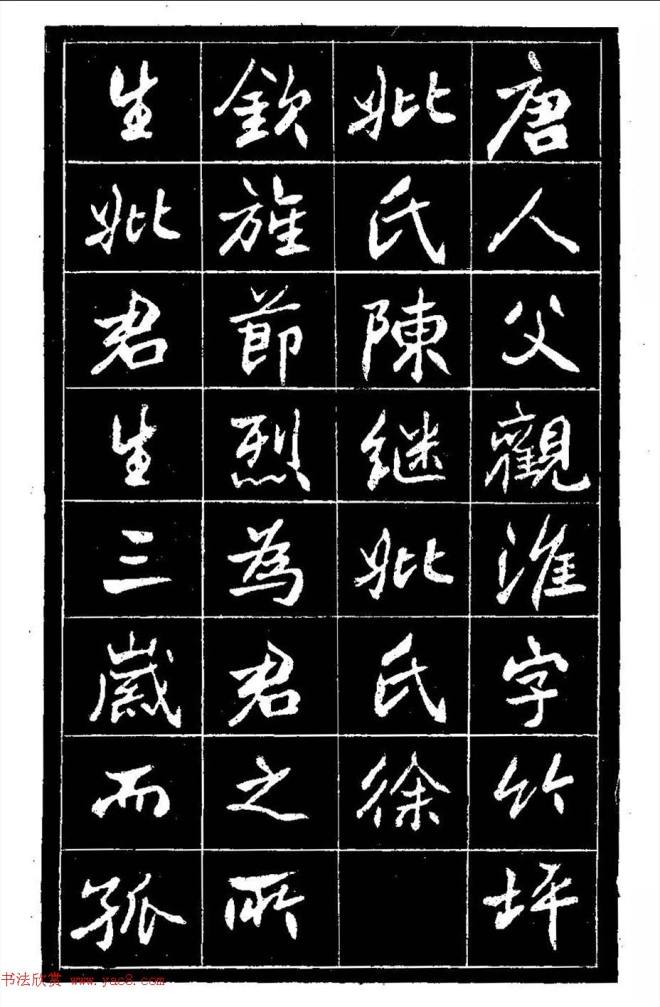 唐人父觀淮字竹坪
妣氏陳継妣氏徐
欽旌節烈為君之所
生妣君生三歲而孤
书法欣赏 www.yac8.com